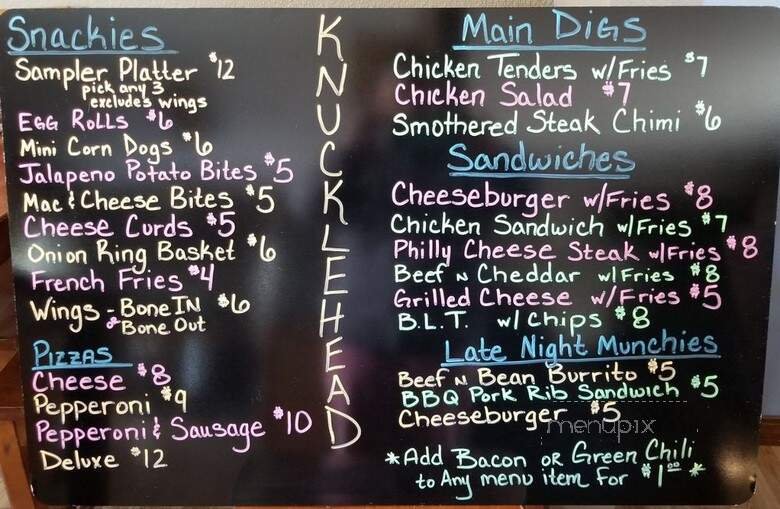 Snackies
Sampler Platter $12
pick any 3
excludes wings
Egg Rolls $6
Mini Corn Dogs $6
Jalapeno Potato Bites $5
Mac & Cheese Bites $5
Cheese Curds $5
Onion Ring Basket $6
French Fries $4
Wings - Bone IN $6
& Bone Out
Pizzas
Cheese $8
Pepperoni $9
Pepperoni & Sausage $10
Deluxe $12
KNUCKLEHEAD
Main Digs
Chicken Tenders w/Fries $7
Chicken Salad $7
Smothered Steak Chimi $6
Sandwiches
Cheeseburger w/Fries $8
Chicken Sandwich w/Fries $7
Philly Cheese Steak w/Fries $8
Beef N Cheddar w/Fries $8
Grilled Cheese w/Fries $5
B.L.T. w/Chips $8
Late Night Munchies
Beef N Bean Burrito $5
BBQ Pork Rib Sandwich $5
Cheeseburger $5
menupix
*Add Bacon or Green Chili
to Any menu item for $1.00 *